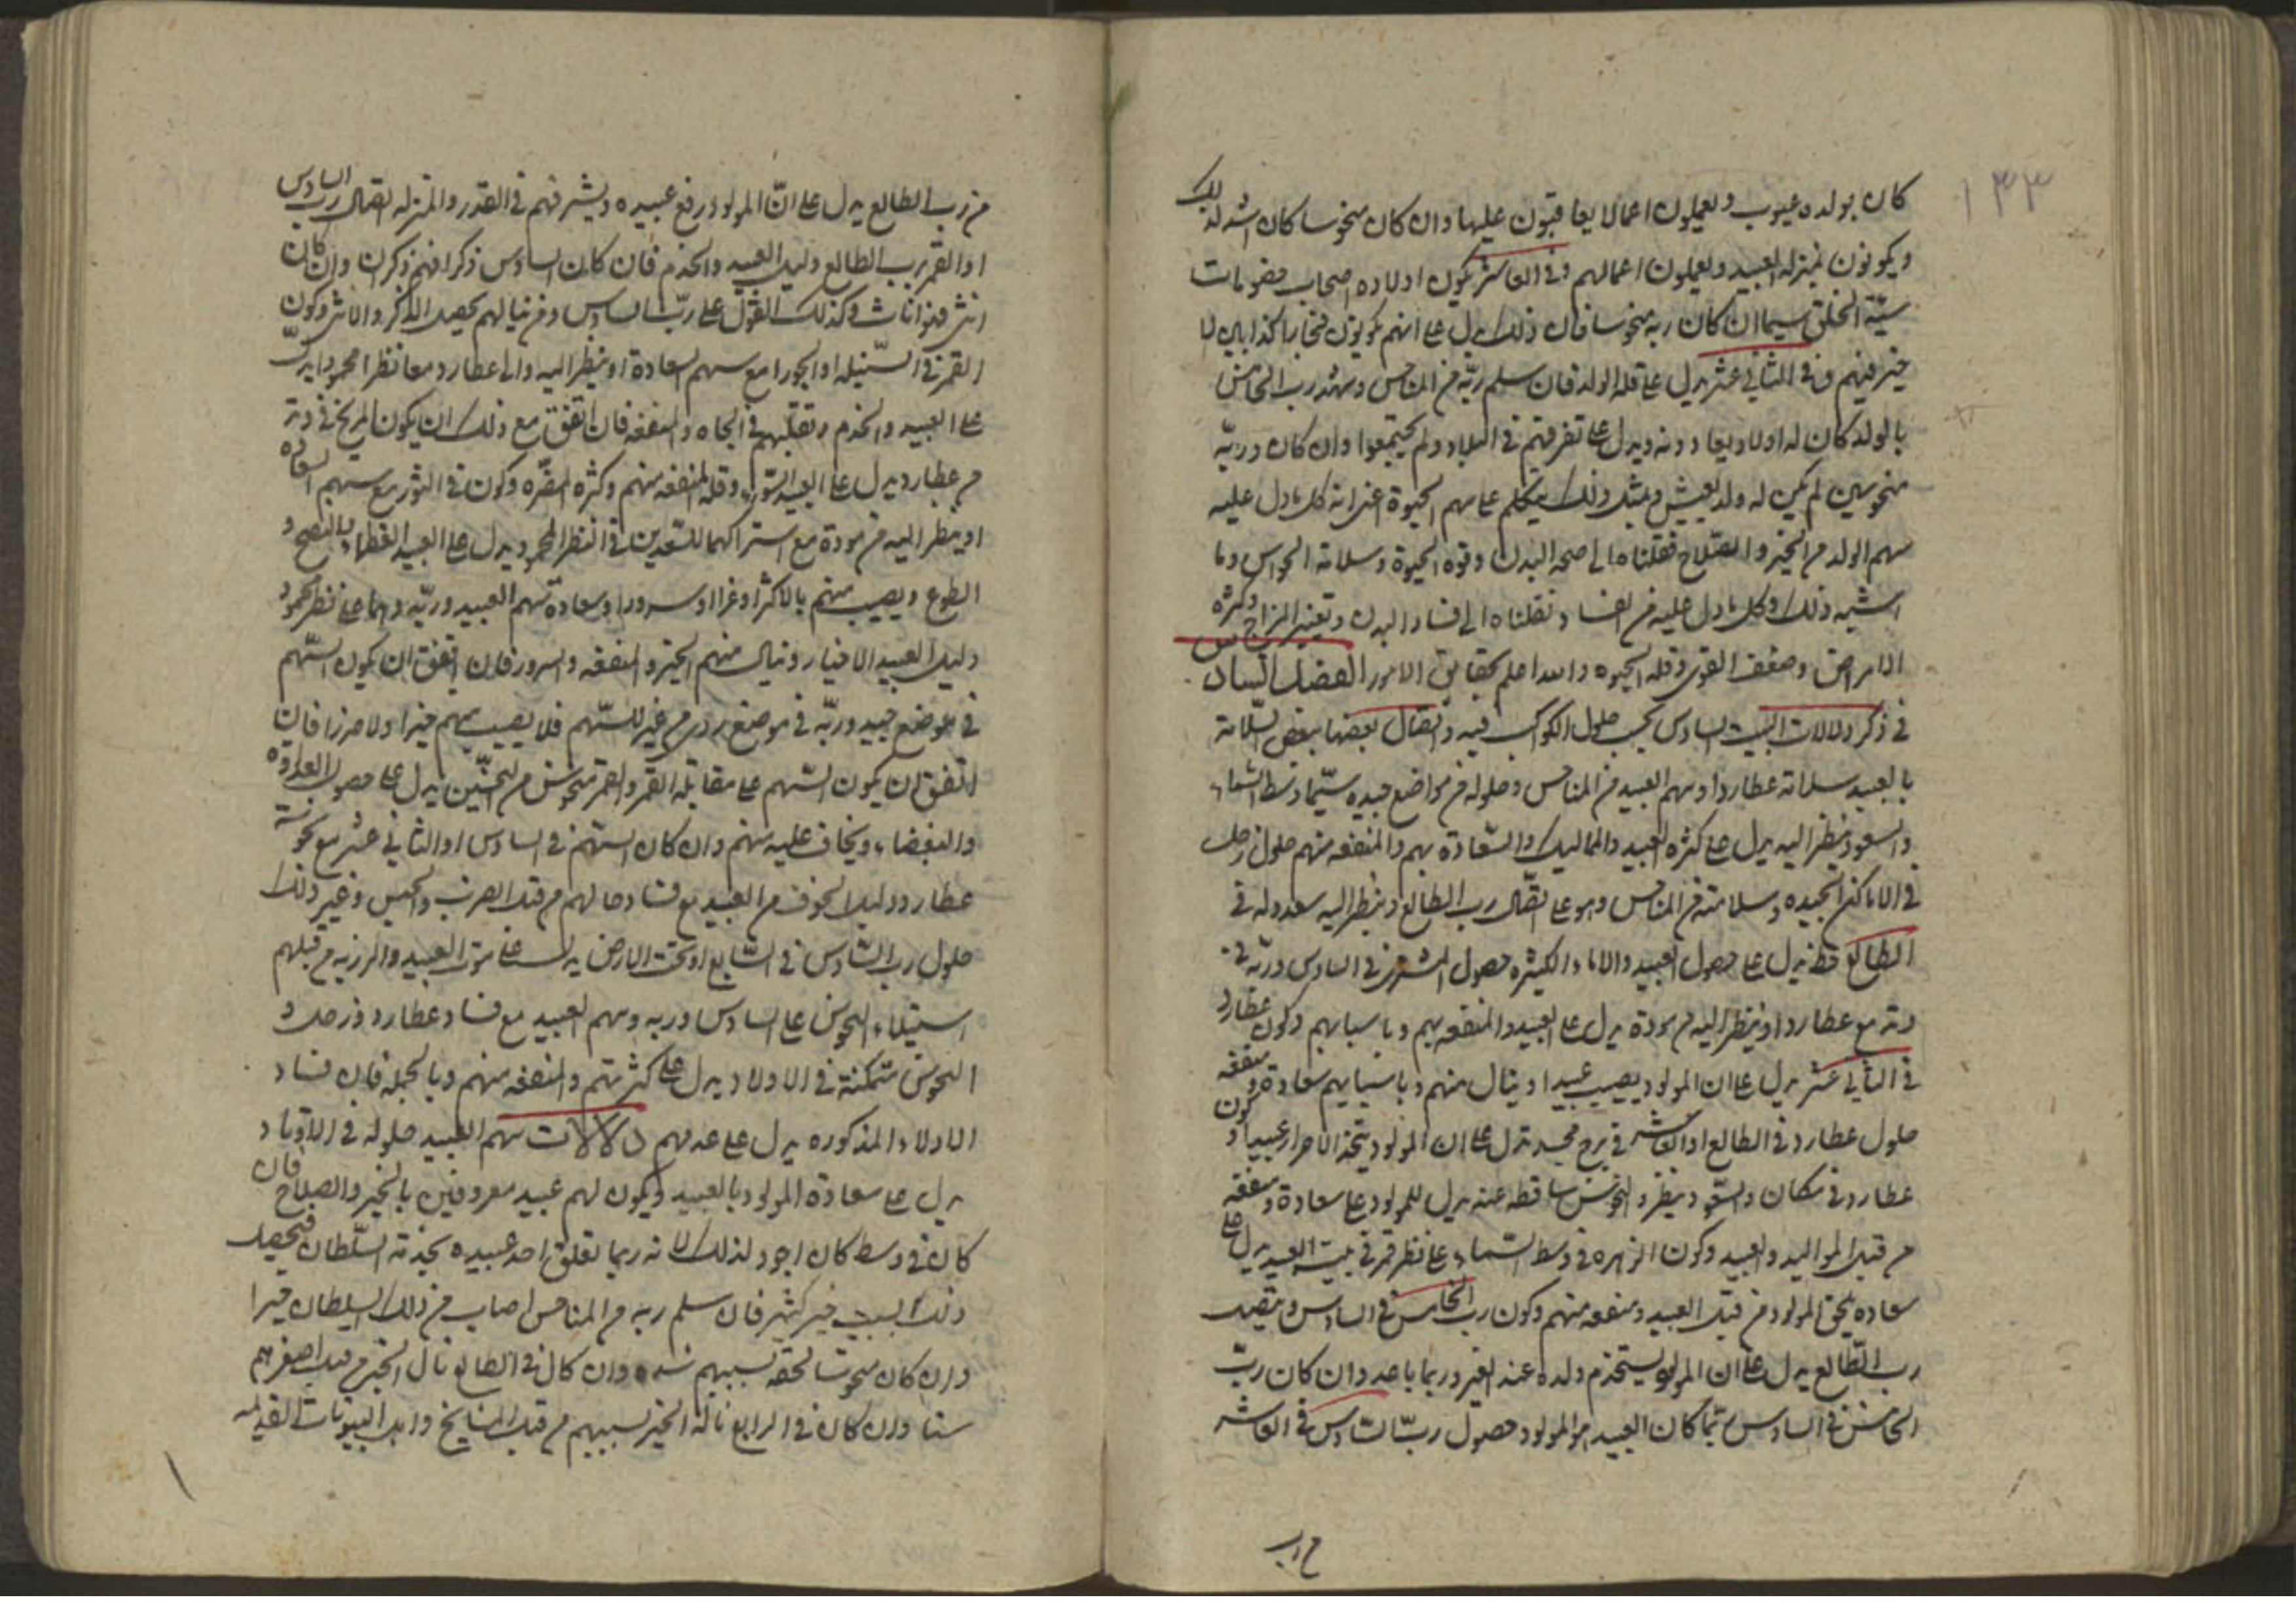 ١٣٣
كان بولده عيوب ويعملون اعمالا يعاقبون عليها وان كان منحوسا كان اشد لذلك
ويكونون بمنزلة العبيد ويعملون اعمالهم وفى العاشر يكون اولاده اصحاب خصومات
سيّة الخلق سيما ان كان ربه منحوسا فان ذلك يدل على انهم يكونون فخارا كذابين لا
خير فيهم وفى الثانى عشر يدل على قلة الولد فان سلم ربّه من المناحس وشهد رب الخامس
بالولد كان له اولاد يعادونه ويدل على تفرقتهم فى البلاد ولم يجتمعوا وان كان وربّه
منحوسين لم يكن له ولد يعيش وبمثل ذلك يتكلم على سهم الحيوة اعنى انه كل ما دل عليه
سهم الولد من الخير والصلاح فقلناه الى صحة البدن وقوة الحيوة وسلامة الحواس وما
اشبه ذلك وكل ما دل عليه من الفساد نقلناه الى فساد البدن وتغير المزاج وكثرة
الامراض وضعف القوى وقلة الحيوة والله اعلم بحقايق الامور الفصل السادس
فى ذكر دلالات البيت السادس بحسب حلول الكواكب فيه واتصال بعضها ببعض السّلامة
بالعبيد سلامة عطارد او سهم العبيد من المناحس وحلوله فى مواضع جيده سيّما وسط السّماء
والسعود ينظر اليه يدل على كثرة العبيد والمماليك والسّعادة بهم والمنفعة منهم حلول زحل
فى الاماكن الجيده وسلامته من المناحس وهو على اتّصال رب الطالع وينظر اليه سعد وله فى
الطالع حظ يدل على حصول العبيد والاماء الكثيرة حصول المشترى فى السادس وربّه فى
وتد مع عطارد او ينظر اليه من مودة يدل على العبيد والمنفعة بهم وباسبابهم وكون عطارد
فى الثانى عشر يدل على ان المولود يصيب عبيدا وينال منهم وباسبابهم سعادة ومنفعة
حلول عطارد فى الطالع او العاشر فى برج مجسد تدل على ان المولود يتخذ الاحرار عبيدا وكون
عطارد فى مكان والسّعود ينظره والنحوس ساقطة عنه يدل للمولود على سعادة ومنفعة
من قبل المواليد والعبيد وكون الزهره فى وسط السّماء وعلى نظر قمر فى بيت العبيد يدل على
سعاده يلحق المولود من قبل العبيد ومنفعة منهم وكون رب الخامس فى السادس ويتصل
رب الطّالع يدل على ان المولود يستخدم ولده عند الغير وربما باعه وان كان ربّ
الخامس فى السادس ربّما كان العبيد من المولود حصول ربّ السّادس فى العاشر
من رب الطالع يدل على انّ المولود رفع عبيده ويشرفهم فى القدر والمنزلة اتصال رب السادس
او القمر برب الطالع دليل العبيد والخدم فان كان السادس ذكرا فهم ذكران وان كان
انثى فهو اناث وكذلك القول على ربّ السادس ومن نيالهم يحصل الذكر والانثى وكون
القمر فى السّنبلة او الجوزا مع سهم السعادة او ينظر اليه والى عطارد معا نظرا محمودا يدلّ
على العبيد والخدم وتقلبهم فى الجاه والمنفعة فان اتفق مع ذلك ان يكون المريخ فى وتد
من عطارد يدل على العبيد السّوء وقلة المنفعة منهم وكثرة المضّرة وكون فى الثور مع سهم السعادة
او ينظر اليه من مودة مع اشتراكهما للسّعدين فى النظر المحمود يدل على العبيد الفطناء بالنصح و
الطوع ويصيب منهم بالاكثر او غرا او سرورا وسعادة سهم العبيد وربّه وهما على نظر محمود
دليل العبيد الاخيار وينال منهم الخير والمنفعة والسرور فان اتفق ان يكون السّهم
فى موضع جيد وربّه فى موضع ردى من غير للسّهم فلا يصيب منهم خيرا ولا ضررا فان
اتفق ان يكون السّهم على مقابلة القمر والقمر منحوس من النحسّين يدل على حصول العداوة
والبغضاء ويخاف عليه منهم وان كان السهم فى السادس او الثانى عشر مع نحوسة
عطارد دليل الخوف من العبيد مع فساد حالهم من قبل الضرب والحبس وغير ذلك
حلول رب السّادس فى السّابع او تحت الارض يدل على موت العبيد والرزية من قبلهم
استيلاء النحوس على السادس وربه وسهم العبيد مع فساد عطارد وزحل و
النحوس متمكنة فى الاولاد يدل على كثرتهم والمنفعة منهم وبالجملة فان فساد
الادلاء المذكوره يدل على عدمهم دلالات سهم العبيد حلوله فى الاوتاد
يدل على سعادة المولود بالعبيد ويكون لهم عبيد معروفين بالخير والصلاح فان
كان فى وسط كان اجود لذلك لانه ربما تعلق احد عبيده بخدمة السّلطان فيحصل
ذلك السبب خير كثير فان سلم ربه من المناحس اصاب من ذلك السلطان خيرا
وان كان منحوسا لحقه بسببهم شده وان كان فى الطالع نال الخير من قبل اصغرهم
سنا وان كان فى الرابع ناله الخير بسببهم من قبل المشايخ واهل البيوتات القديمه